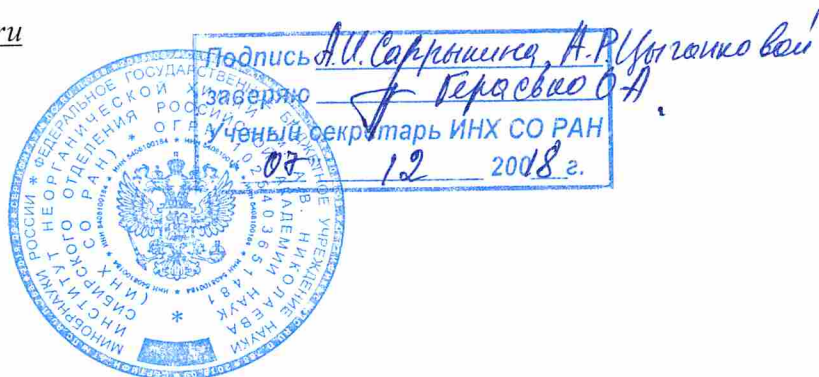 Подпись А.И. Сапрыкина, А.Р. Цыганковой
заверяю Герасько О А
Ученый секретарь ИНХ СО РАН
07 12 2018 г.
МИНОБРНАУКИ РОССИИ * ФЕДЕРАЛЬНОЕ ГОСУДАРСТВЕННОЕ БЮДЖЕТНОЕ УЧРЕЖДЕНИЕ НАУКИ
ИНСТИТУТ НЕОРГАНИЧЕСКОЙ ХИМИИ ИМ. А.В. НИКОЛАЕВА
СИБИРСКОГО ОТДЕЛЕНИЯ РОССИЙСКОЙ АКАДЕМИИ НАУК
(ИНХ СО РАН) * ОГРН 1025403651481
* ИНН 5408100184 *